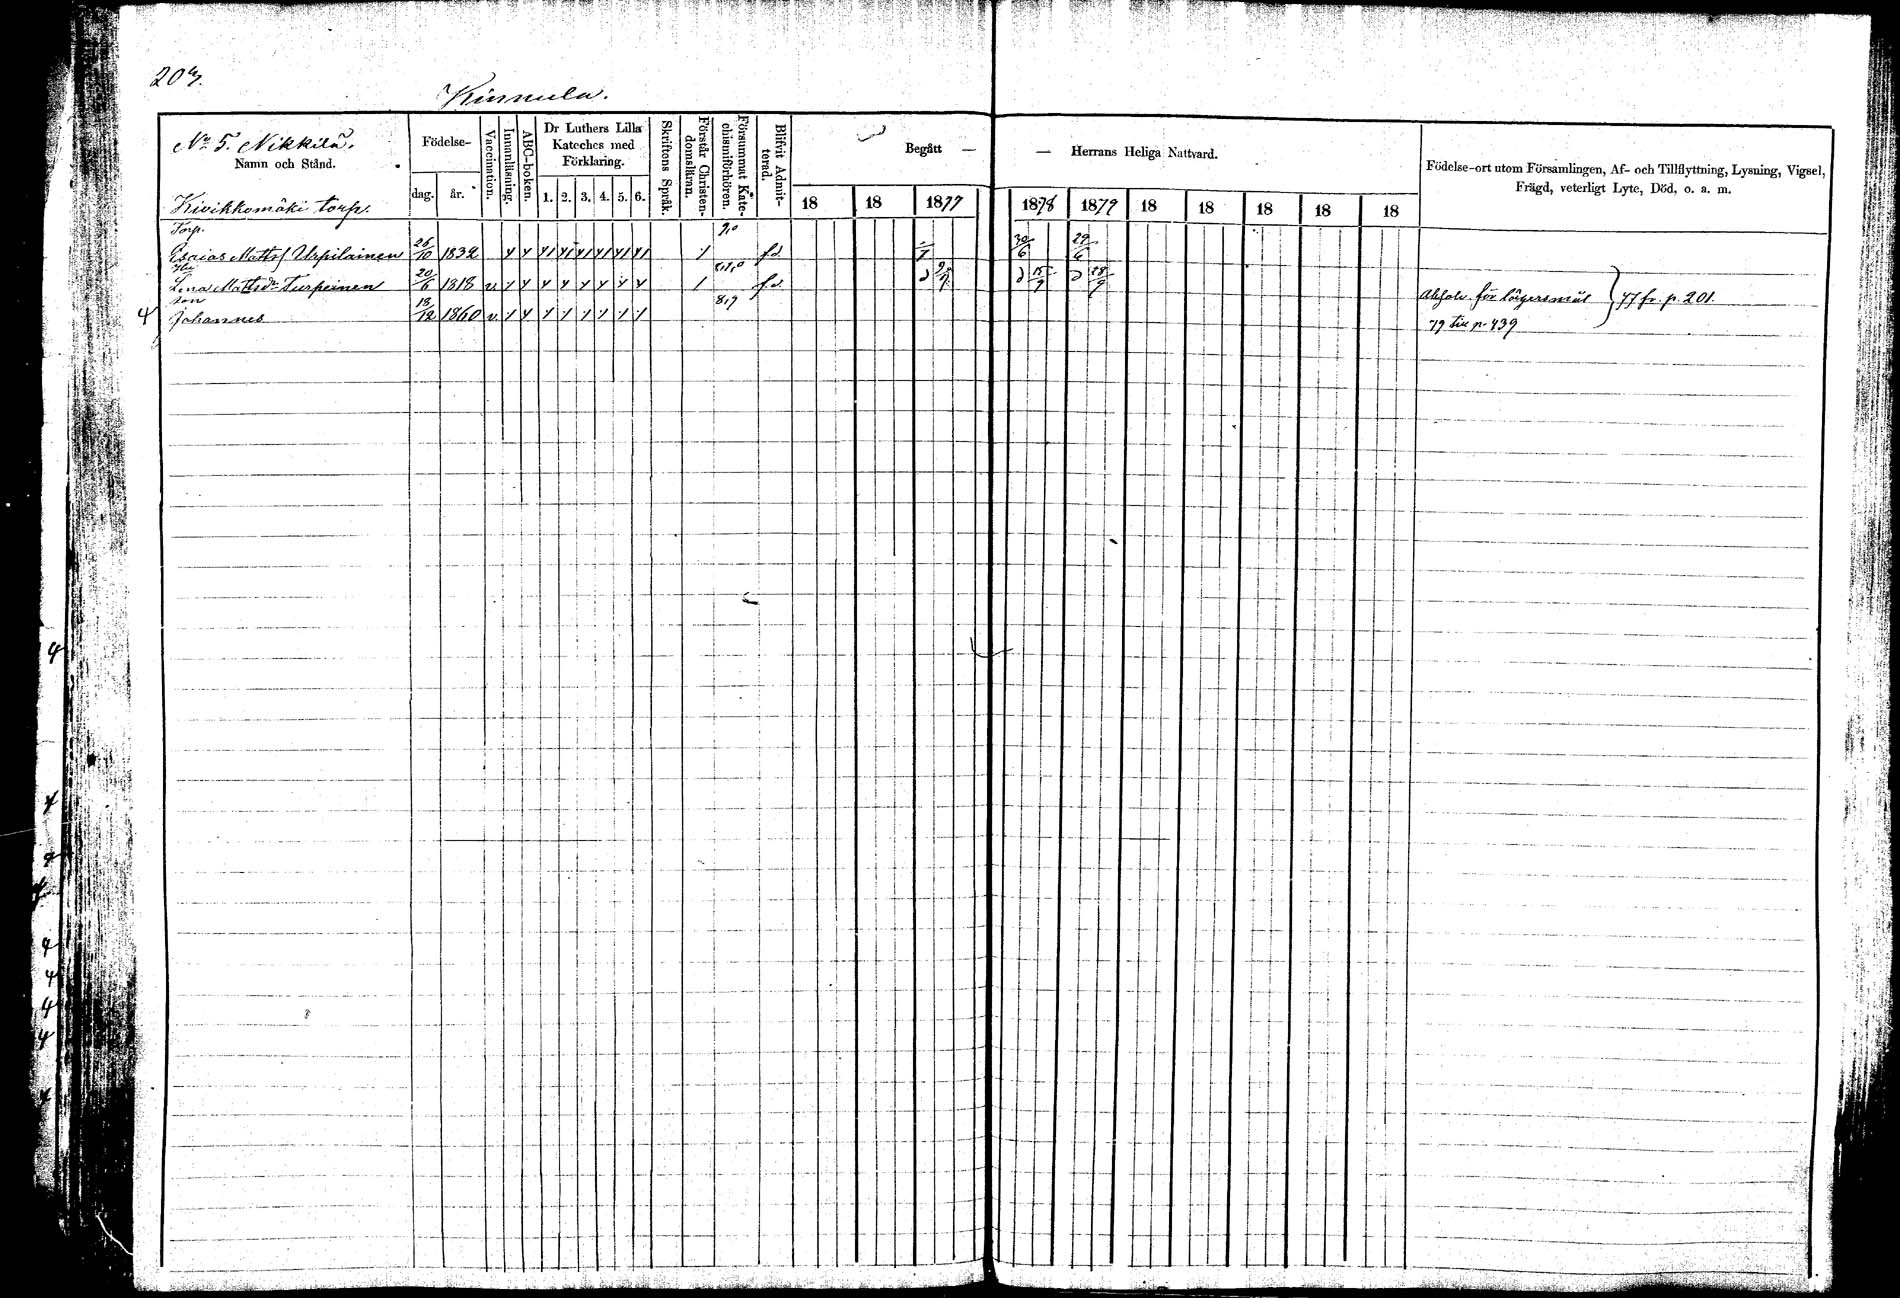 Kinnula.
No 5. Nikkilä.
Namn och Stånd.
Födelse-
dag. år.
Vaccination.
Innanläsning.
ABC-boken.
Dr Luthers Lilla
Kateches med
Förklaring.
1. 2. 3. 4. 5. 6.
Skriftens Språk.
Förstår Christen-
domslära.
Försummat Kate-
chismiförhören.
Blifvit Admit-
terad.
Begått —
18 18 1877
— Herrans Heliga Nattvard.
1878 1879 18 18 18 18 18
Födelse-ort utom Församlingen, Af- och Tillflyttning, Lysning, Vigsel,
Frägd, veterligt Lyte, Död, o. a. m.
Kivikkomäki torp.
Torp.
Esaias Matts Urpilainen 26/10 1832 f.d. 30/6 29/6
Lena Mattsdr Turpeinen 20/6 1818 v. f.d. 15/9 28/9
son
Johannes 18/12 1860 v. 8,9
för lägersmål 77 fr. p. 201.
79 till p. 439